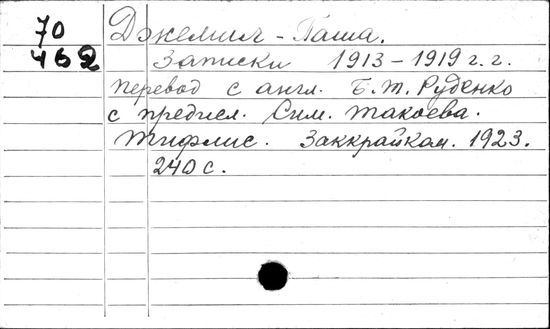 70 Джемил-Паша.
462 Записки 1913-1919 г.г.
Перевод с англ. Б.Т. Руденко
с предисл. Сим. Такоева.
Тифлис. Заккрайком. 1923.
240 с.